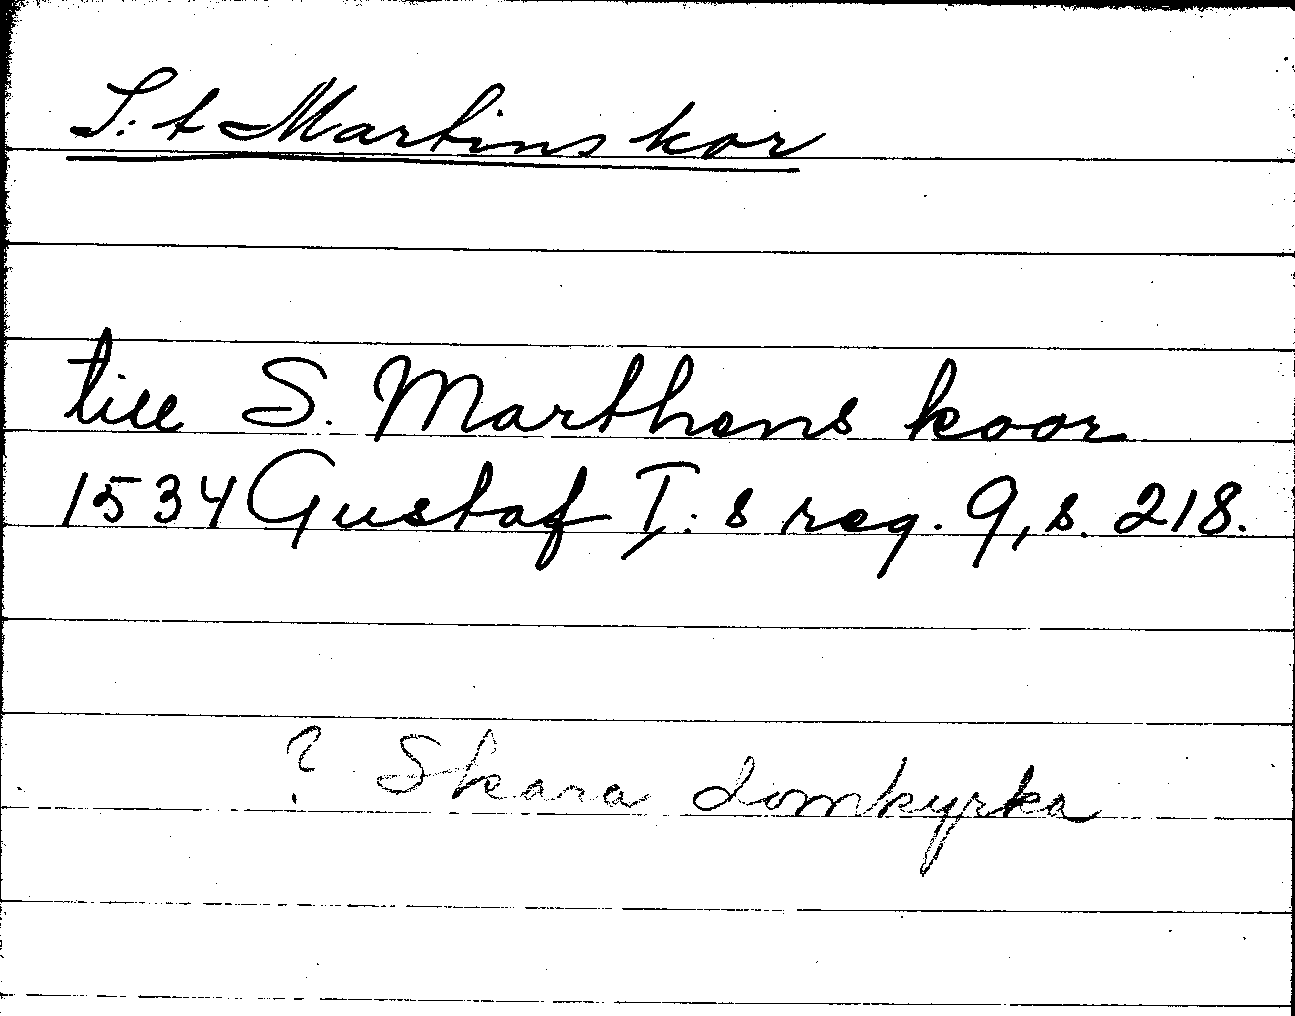 S:t Martins kor
till S. Marthens koor
1534 Gustaf I:s reg. 9, s. 218.
? Skara domkyrka